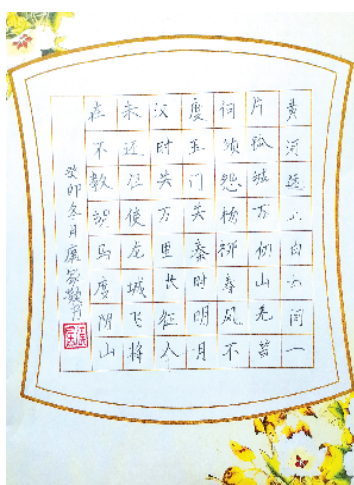 黄河远上白云间一
片孤城万仞山羌笛
何须怨杨柳春风不
度玉门关秦时明月
汉时关万里长征人
未还但使龙城飞将
在不教胡马度阴山
癸卯冬月